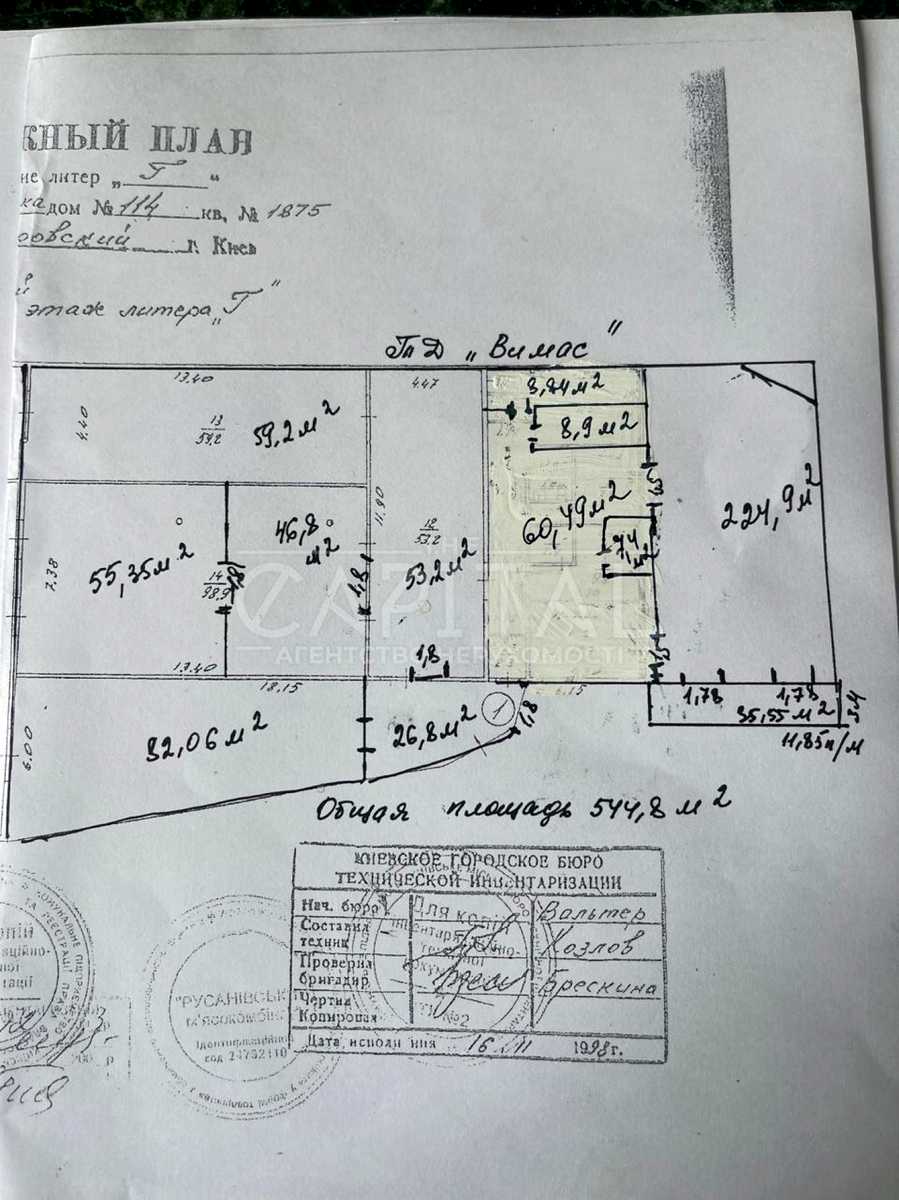 ЖНЫЙ ПЛАН
ие литер „ Г “
ка дом № 114 кв. № 1875
ровский г. Киев
этаж литера „Г"
ТпД „Вимас"
13.40
4.47
8,84 м²
4.40
13
59,2
59,2 м²
8,9 м²
1,5
224,9 м²
11.90
60,49 м²
46,8 м²
12
53,2
7,4 м²
7.38
55,35 м²
14
98,9
1,8
1,8
53,2 м²
CAPITAL
АГЕНТСТВО НЕРУХОМОСТІ
1,8
1,5
13.40
18.15
6.15
1
1,8
1,78
1,78
35,55 м²
11,85 п/м
6.00
82,06 м²
26,8 м²
Общая площадь 544,8 м²
КИЕВСКОЕ ГОРОДСКОЕ БЮРО
ТЕХНИЧЕСКОЙ ИНВЕНТАРИЗАЦИИ
Нач. бюро Вальтер
Составил техник Козлов
Проверил бригадир Брескина
Чертил
Копировал
Дата исполнения 16 II 1998 г.
Для копій
№2
"РУСАНІВСЬК
М'ЯСОКОМБІН
Ідентифікаційний
код 24732110